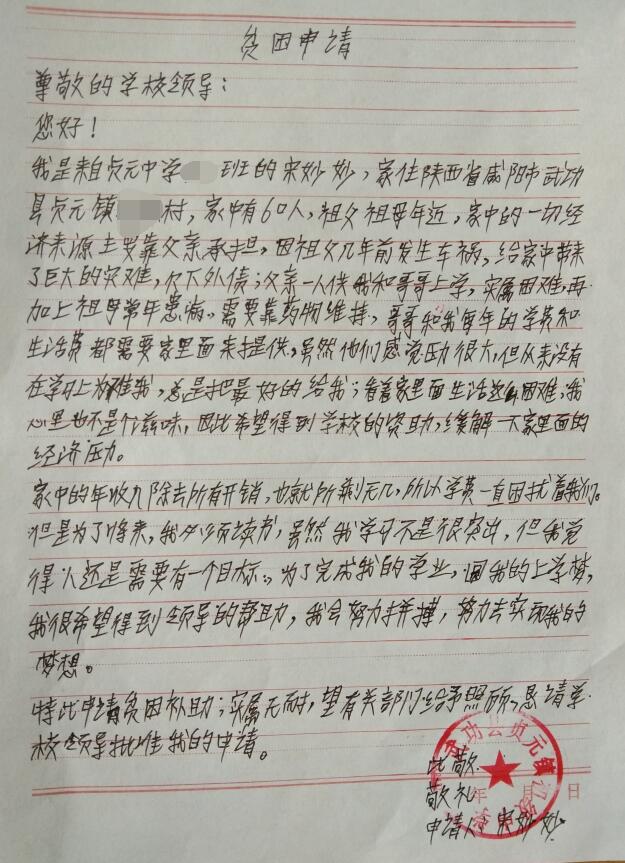 贫困申请
尊敬的学校领导：
您好！
我是来自贞元中学 班的宋妙妙，家住陕西省咸阳市武功
县贞元镇 村，家中有6口人，祖父祖母年迈，家中的一切经
济来源主要靠父亲承担，因祖父几年前发生车祸，给家中带来
了巨大的灾难，欠下外债；父亲一人供我和哥哥上学，实属困难，再
加上祖母常年患病，需要靠药物维持，哥哥和我每年的学费和
生活费都需要家里面来提供，虽然他们感觉压力很大，但从来没有
在学习上为难我，总是把最好的给我；看着家里面生活这么困难，我
心里也不是个滋味，因此希望得到学校的资助，缓解一下家里面的
经济压力。
家中的年收入除去所有开销，也就所剩无几，所以学费一直困扰着我们。
但是为了将来，我必须读书，虽然我学习不是很突出，但我觉
得人还是需要有一个目标。为了完成我的学业，圆我的上学梦，
我很希望得到领导的帮助，我会努力拼搏，努力去实现我的
梦想。
特此申请贫困补助；实属无耐，望有关部门给予照顾，恳请学
校领导批准我的申请。
此敬
敬礼
年 月 日
申请人 宋妙妙
武功县贞元镇